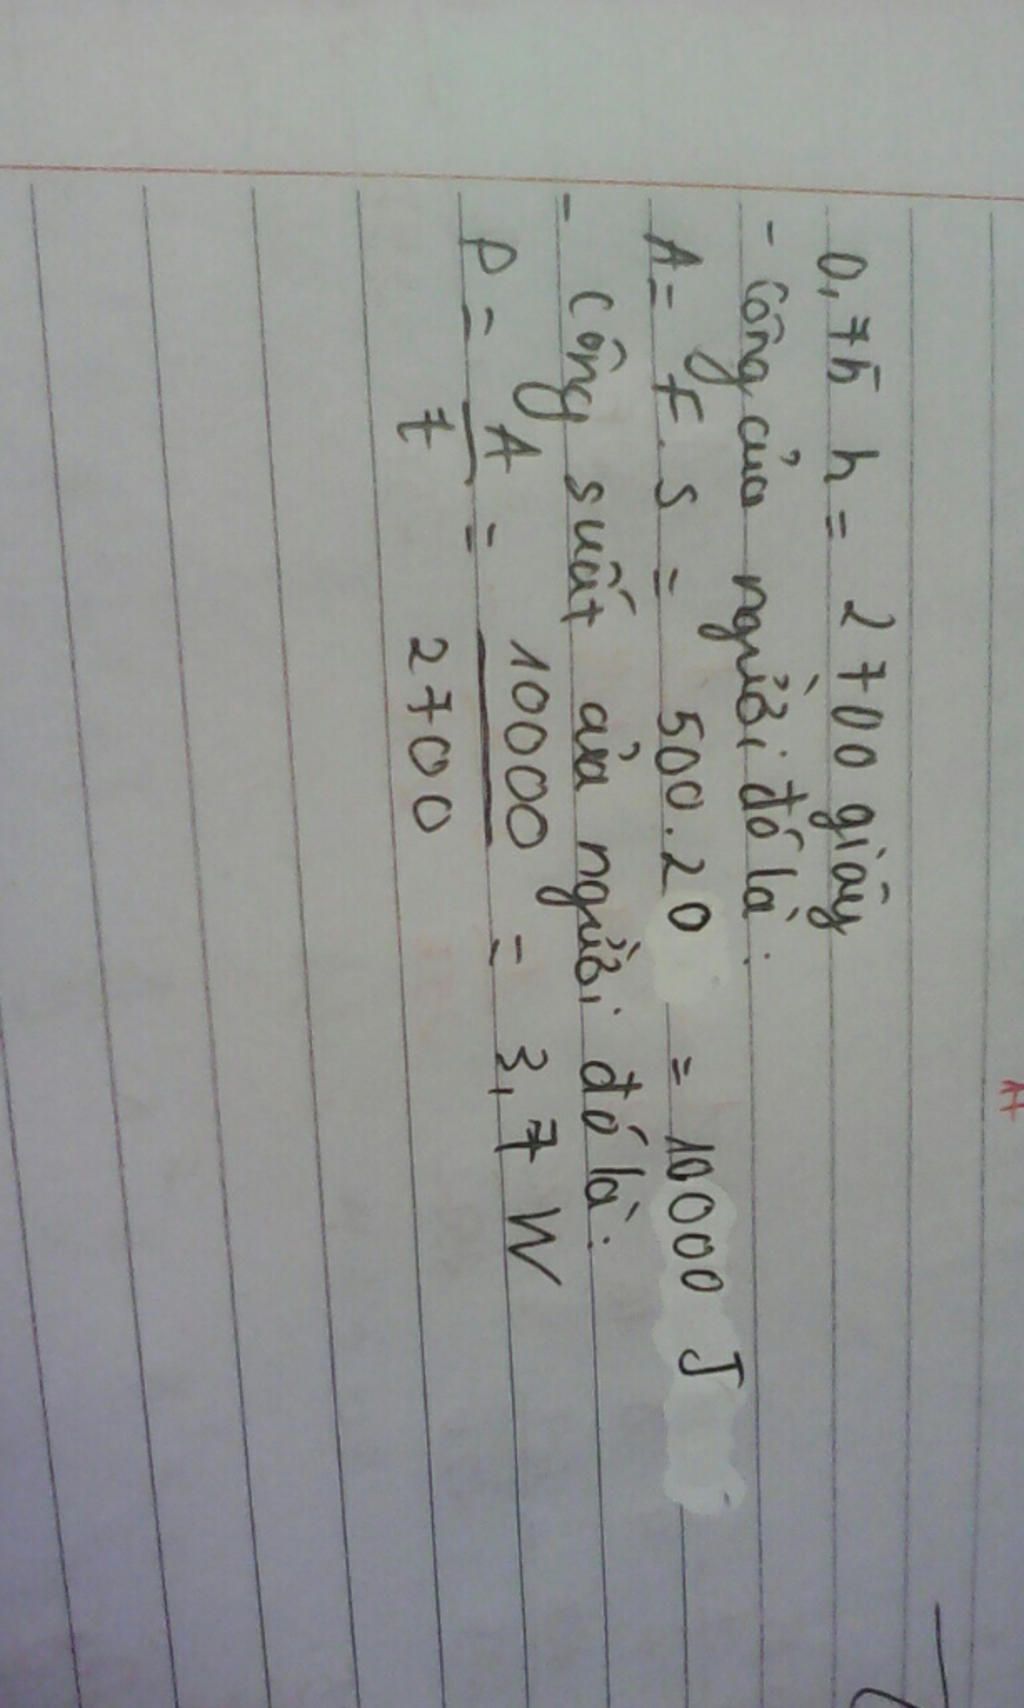 0,75 h = 2700 giây
- Công của người đó là:
A = F. S = 500.20 = 10000 J
- Công suất của người đó là:
P = A/t = 10000/2700 = 3,7 W